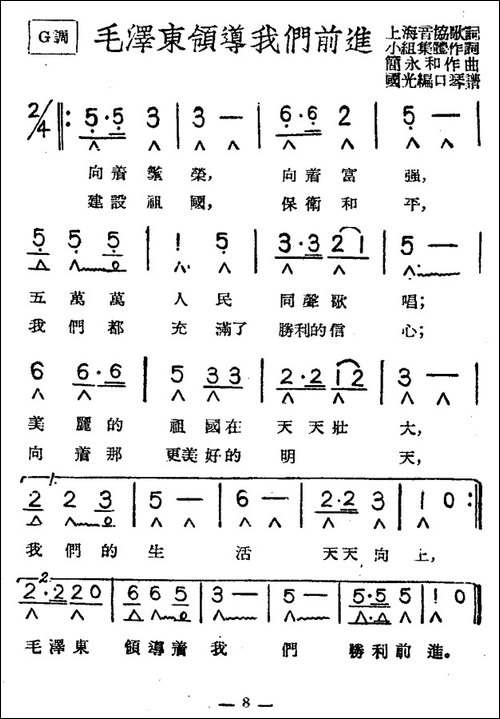 G調
毛澤東領導我們前進
上海音協歌詞
小組集體作詞
簡永和作曲
國光編口琴譜
2/4 ‖: 5·5 3 | 3 — | 6·6 2 | 5 — |
向着繁榮， 向着富强，
建設祖國， 保衛和平，
5 5 5 | 1 5 | 3·3 2 1 | 5 — |
五萬萬人民同聲歌唱；
我們都充滿了勝利的信心；
6 6·6 | 5 3 3 | 2·2 1 2 | 3 — |
美麗的祖國在天天壯大，
向着那更美好的明天，
1. 2 2 3 | 5 — | 6 — | 2·2 3 | 1 0 :‖
我們的生活天天向上，
2. 2·2 2 0 | 6 6 5 | 3 — | 5 — | 5·5 5 | 6 0 ‖
毛澤東領導着我們勝利前進。
— 8 —